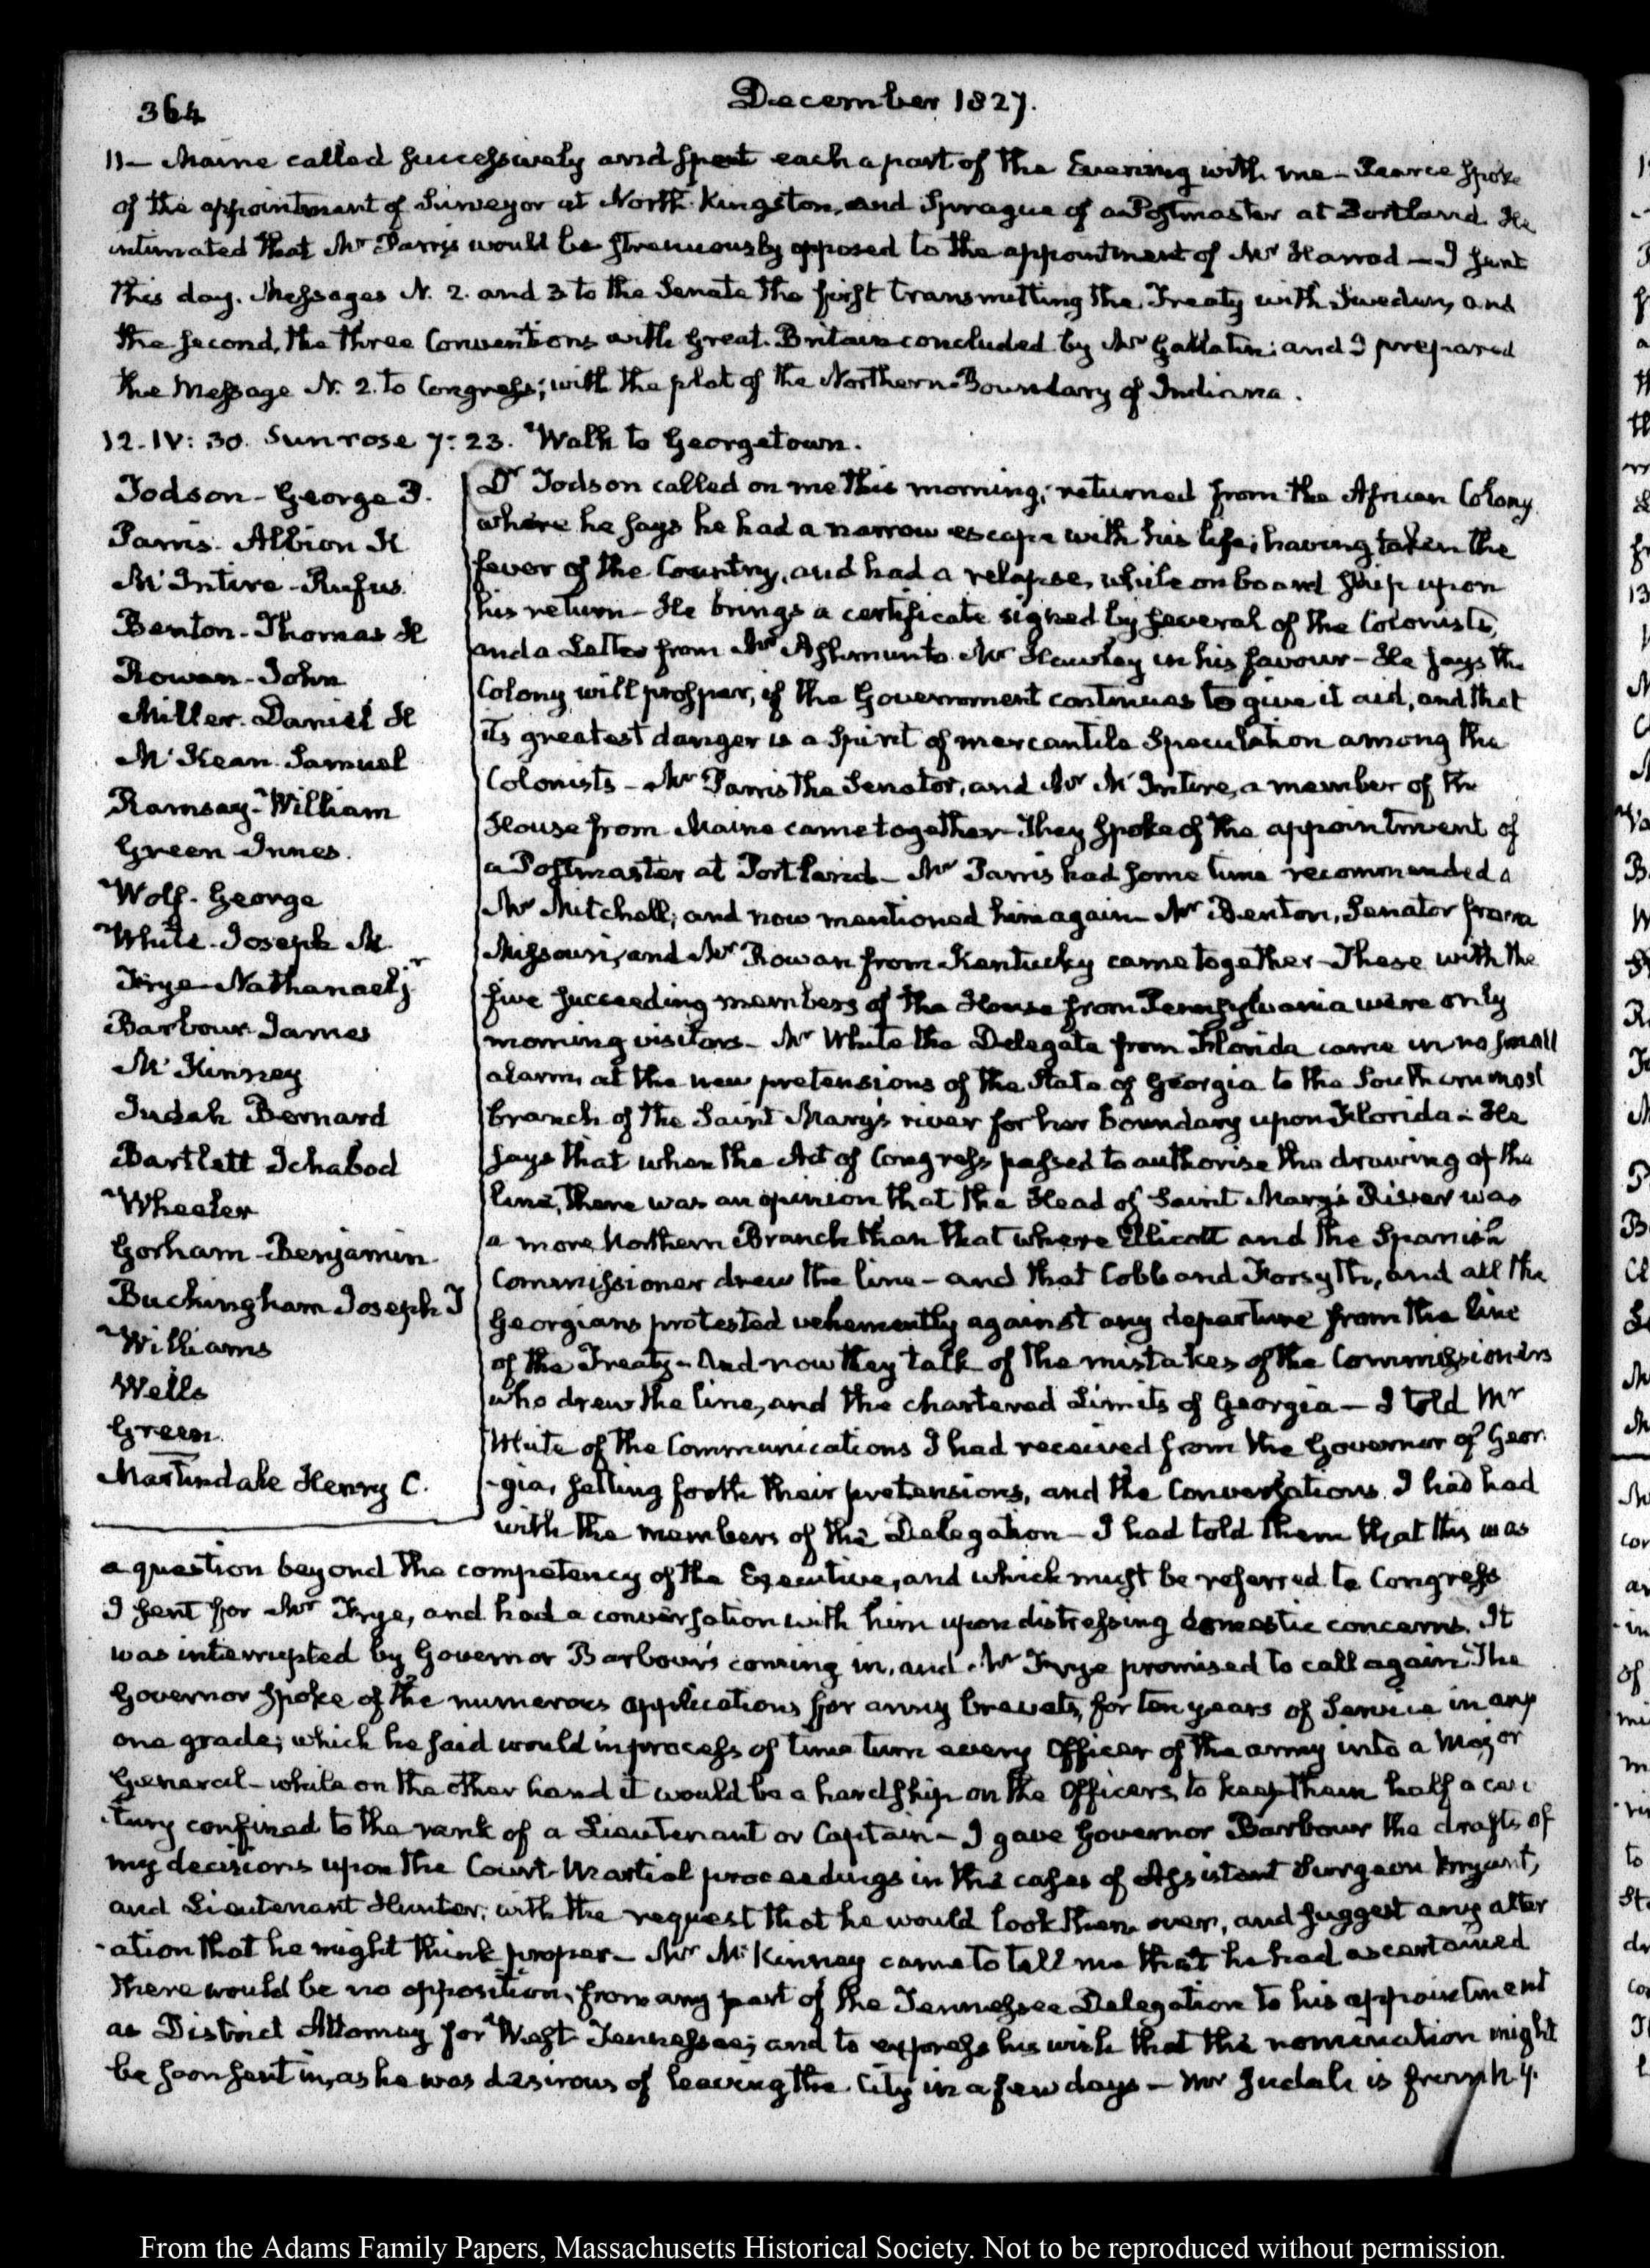 364
December 1827.
11— Maine called successively and spent each a part of the Evening with me— Pearce spoke
of the appointment of Surveyor at North Kingston, and Sprague of a Postmaster at Portland. He
intimated that Mr Parris would be strenuously opposed to the appointment of Mr Harrod — I sent
this day. Messages N. 2. and 3 to the Senate the first transmitting the Treaty with Sweden, and
the second, the three Conventions with Great-Britain concluded by Mr Gallatin; and I prepared
the Message N. 2. to Congress; with the plat of the Northern Boundary of Indiana.
12. IV: 30. Sun rose 7: 23. Walk to Georgetown.
Todson - George P.
Parris. Albion K
McIntire - Rufus.
Benton - Thomas H
Rowan - John
Miller. Daniel H
McKean. Samuel
Ramsay - William
Green Innes.
Wolf. George
White. Joseph M.
Frye - Nathaniel jr
Barbour James
McKinney
Judah Bernard
Bartlett Ichabod
Wheeler
Gorham - Benjamin
Buckingham Joseph T
Williams
Wells
Green
Martindale Henry C.
Dr Todson called on me this morning; returned from the African Colony
where he says he had a narrow escape with his life; having taken the
fever of the Country, and had a relapse, while on board ship upon
his return— He brings a certificate signed by several of the Colonists,
and a Letter from Mr Ashmun to Mr Hawley in his favour— He says the
Colony will prosper, if the Government continues to give it aid, and that
its greatest danger is a Spirit of mercantile Speculation among the
Colonists— Mr Parris the Senator, and Mr McIntire, a member of the
House from Maine came together— They spoke of the appointment of
a Postmaster at Portland— Mr Parris had some time recommended a
Mr Mitchell, and now mentioned him again— Mr Benton, Senator from
Missouri, and Mr Rowan from Kentucky came together— These with the
five succeeding members of the House from Pennsylvania were only
morning visitors— Mr White the Delegate from Florida came in no small
alarm, at the new pretensions of the State of Georgia to the Southernmost
branch of the Saint Mary's river for her boundary upon Florida— He
says that when the Act of Congress passed to authorise the drawing of the
line, there was an opinion that the Head of Saint Mary's River was
a more Northern Branch than that where Ellicott and the Spanish
Commissioner drew the line— and that Cobb and Forsyth, and all the
Georgians protested vehemently against any departure from the line
of the Treaty— And now they talk of the mistakes of the Commissioners
who drew the line, and the chartered Limits of Georgia — I told Mr
White of the Communications I had received from the Governor of Geor-
-gia, setting forth their pretensions, and the Conversations I had had
with the members of the Delegation— I had told them that this was
a question beyond the competency of the Executive, and which must be referred to Congress
I sent for Mr Frye, and had a conversation with him upon distressing domestic concerns. It
was interrupted by Governor Barbour's coming in, and Mr Frye promised to call again. The
Governor spoke of the numerous applications for army brevets, for ten years of Service in any
one grade; which he said would in process of time turn every Officer of the army into a Major
General— while on the other hand it would be a hardship on the Officers, to keep them half a cen
-tury confined to the rank of a Lieutenant or Captain— I gave Governor Barbour the drafts of
my decisions upon the Court-Martial proceedings in the cases of Assistant Surgeon Bryant,
and Lieutenant Hunter; with the request that he would look them over, and suggest any alter
-ation that he might think proper— Mr McKinney came to tell me that he had ascertained
there would be no opposition, from any part of the Tennessee Delegation to his appointment
as District Attorney for West Tennessee; and to express his wish that the nomination might
be soon sent in, as he was desirous of leaving the City in a few days — Mr Judah is from N.Y.
From the Adams Family Papers, Massachusetts Historical Society. Not to be reproduced without permission.